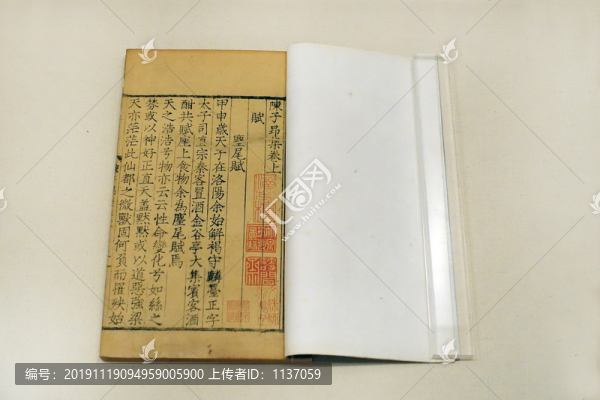 陳子昂集卷上
賦
麈尾賦
甲申歲天子在洛陽余始解褐守麟臺正字
太子司直宗秦客置酒金谷亭大集賓客酒
酣共賦座上食物余為麈尾賦焉
天之浩浩兮物亦云云性命變化兮如絲之
棼或以神好正直天蓋默默或以道惡強梁
天亦茫茫此仙都之微獸固何負而罹殃始
汇图网
www.huitu.com
编号：20191119094959005900 上传者ID：1137059